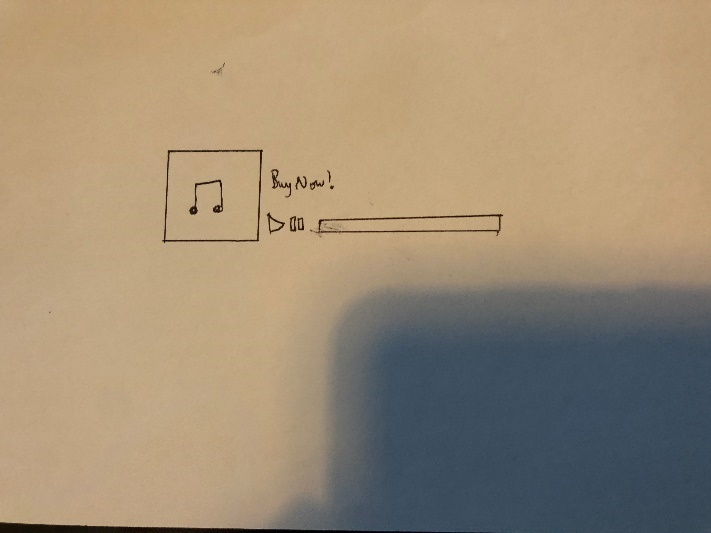 Buy Now!